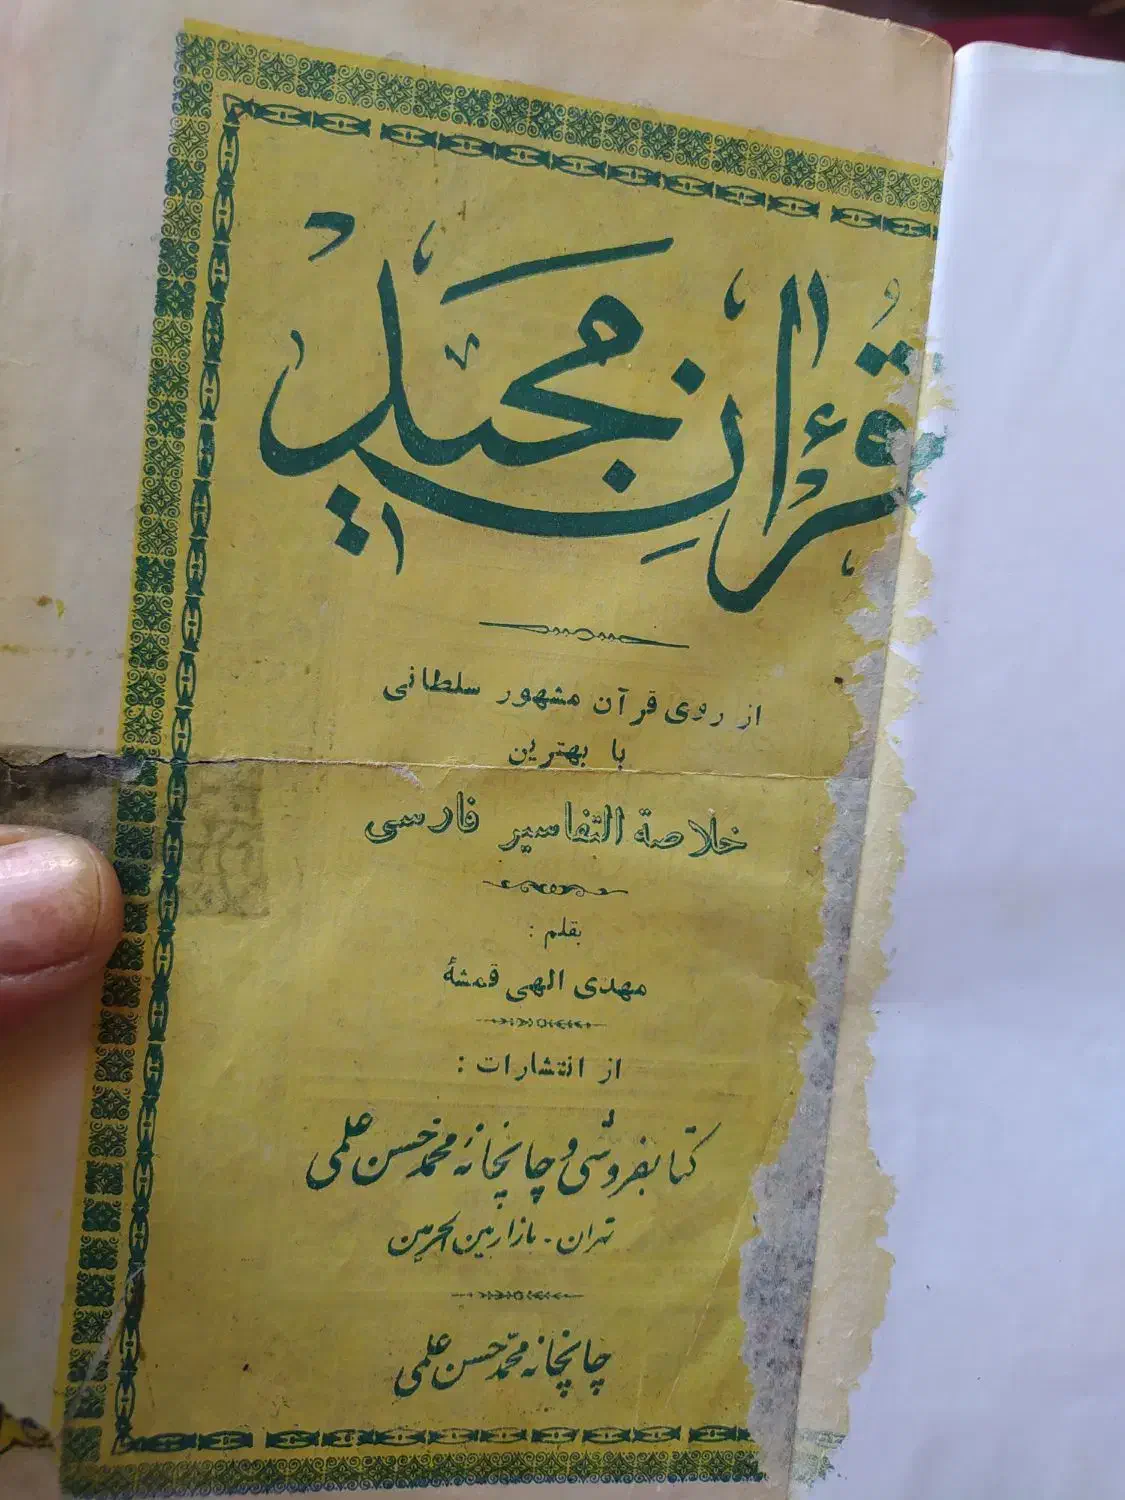 قُرآنِ مجید
از روی قرآن مشهور سلطانی
با بهترین
خلاصة التفاسیر فارسی
بقلم :
مهدی الهی قمشهٔ
از انتشارات :
کتابفروشی و چاپخانهٔ محمد حسن علمی
تهران - بازار بین الحرمین
چاپخانه محمّد حسن علمی